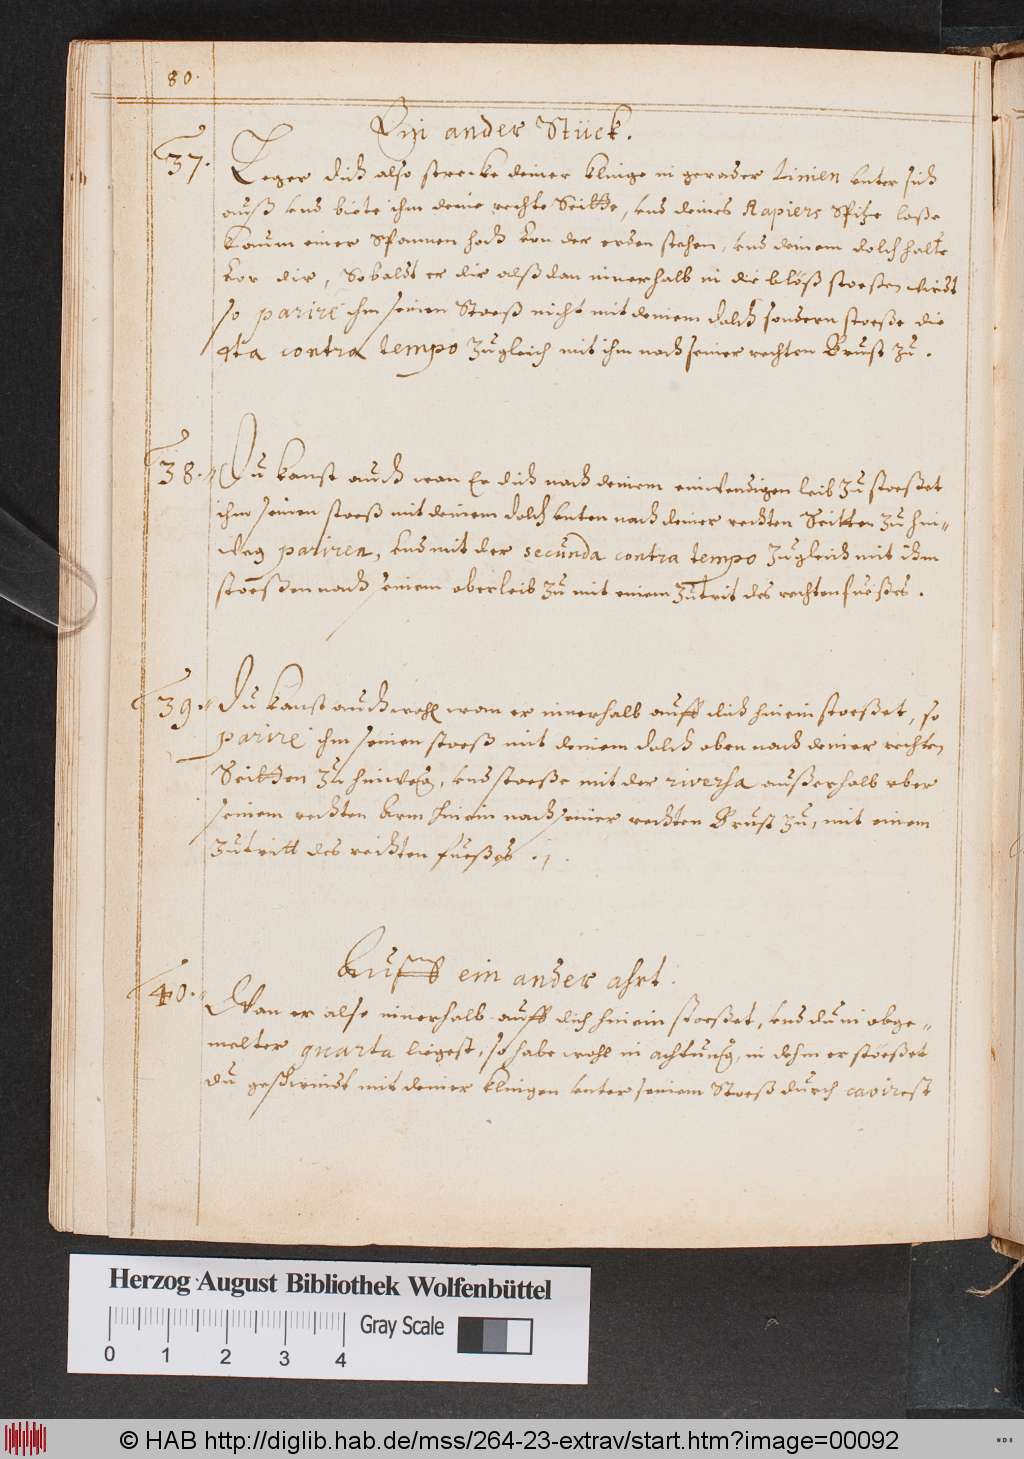 80.
Ein ander Stück.
37. Leger dich also strecke deiner klinge in gerader Linien unter sich
auß und biete ihm deine rechte Seitte, und deines Rapiers Spitze laße
kaum einer Spannen hoch von der erden stehen, und deinem dolch halte
vor dir, Sobaldt er dir alßdan innerhalb in die blöß stoeßen wirdt
so parire ihm seinen Stoeß nicht mit deinem dolch sondern stoeße die
4ta contra tempo zugleich mit ihm nach seiner rechten Brust zu.
38. Du kanst auch wan Er dich nach deinem einwendigen leib zu stoeßet
ihm seinen stoeß mit deinem dolch unten nach deiner rechten Seitten zu hin-
weg pariren, und mit der secunda contra tempo zugleich mit ihm
stoeßen nach seinem oberleib zu mit einem zutrit des rechten fueßes.
39. Du kanst auch wohl wan er innerhalb auff dich hinein stoeßet, so
parire ihm seinen stoeß mit deinem dolch oben nach deiner rechten
Seitten zu hinweg, und stoeße mit der riversa außerhalb uber
seinem rechten Arm hinein nach seiner rechten Brust zu, mit einem
zutritt des rechten fueßes.
Auff ein ander ahrt.
40. Wan er alse innerhalb auff dich hinein stoeßet, und du in obge-
melter quarta liegest, so habe wohl in achtung, in dehm er stoeßet
du geschwindt mit deiner klingen unter seinem Stoeß durch cavirest
Herzog August Bibliothek Wolfenbüttel
Gray Scale
0 1 2 3 4
© HAB http://diglib.hab.de/mss/264-23-extrav/start.htm?image=00092